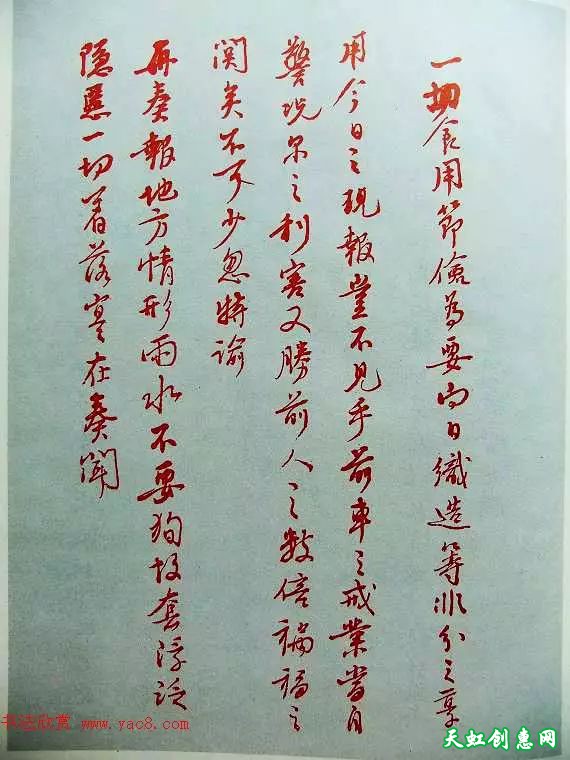 一切食用節儉為要向日織造等非分之享
用今日之現報豈不見乎前車之戒業當自
警況尔之利害又勝前人之數倍禍福之
関矣不可少忽特諭
再奏報地方情形雨水不要狥故套浮泛
隐慝一切着落寔在奏闻
书法欣赏 www.yac8.com
天虹创惠网